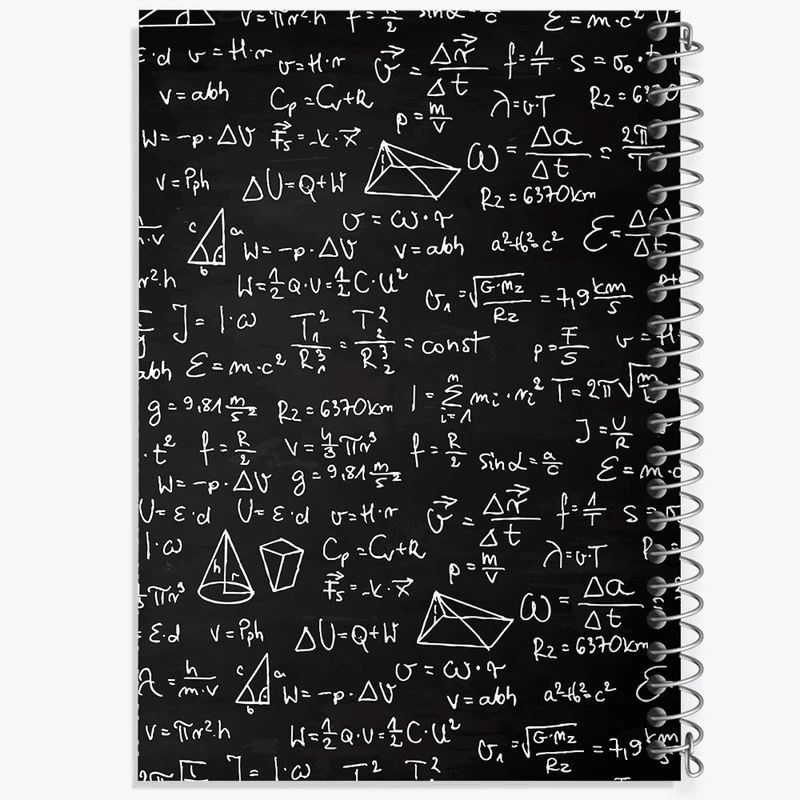 v=πr²·h f=R/2 sinα=a/c E=m·c²
E·d v=H·r v=H·r v⃗=Δr⃗/Δt f=1/T S=σ₀·t
v=abh Cp=Cv+R p=m/V λ=v·T Rz=6370
W=-p·ΔV F⃗s=-k·x⃗ ω=Δα/Δt=2π/T
v=Pph ΔU=Q+W Rz=6370km
v=ω·r
h/m·v c a b W=-p·ΔV v=abh a²+b²=c² E=
r²·h W=½Q·U=½C·U² v₁=√(G·Mz/Rz)=7,9 km/s
J=I·ω T₁²/R₁³=T₂²/R₂³=const p=F/S v=H
abh E=m·c² I=Σ mᵢ·rᵢ² n i=1 T=2π√m
g=9,81 m/s² Rz=6370km J=U/R
·t² f=R/2 V=4/3πr³ f=R/2 sinα=a/c E=m·c
W=-p·ΔV g=9,81 m/s²
U=E·d U=E·d v=H·r v⃗=Δr⃗/Δt f=1/T S=
I·ω h r Cp=Cv+R p=m/V λ=v·T
πr³ F⃗s=-k·x⃗ ω=Δα/Δt
E·d v=Pph ΔU=Q+W Rz=6370km
v=ω·r
λ=h/m·v c a b W=-p·ΔV v=abh a²+b²=c²
v=πr²·h W=½Q·U=½C·U² v₁=√(G·Mz/Rz)=7,9 km/s
J=I·ω T² T²